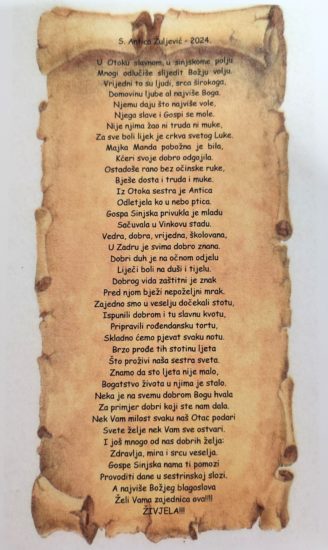 S. Antica Žuljević - 2024.
U Otoku slavnom, u sinjskome polju
Mnogi odlučiše slijedit Božju volju.
Vrijedni to su ljudi, srca širokoga,
Domovinu ljube al najviše Boga.
Njemu daju što najviše vole,
Njega slave i Gospi se mole.
Nije njima žao ni truda ni muke,
Za sve boli lijek je crkva svetog Luke.
Majka Manda pobožna je bila,
Kćeri svoje dobro odgojila.
Ostadoše rano bez očinske ruke,
Bješe dosta i truda i muke.
Iz Otoka sestra je Antica
Odletjela ko u nebo ptica.
Gospa Sinjska privukla je mladu
Sačuvala u Vinkovu stadu.
Vedra, dobra, vrijedna, školovana,
U Zadru je svima dobro znana.
Dobri duh je na očnom odjelu
Liječi boli na duši i tijelu.
Dobrog vida zaštitni je znak
Pred njom bježi nepoželjni mrak.
Zajedno smo u veselju dočekali stotu,
Ispunili dobrom i tu slavnu kvotu,
Pripravili rođendansku tortu,
Skladno ćemo pjevat svaku notu.
Brzo prođe tih stotinu ljeta
Što proživi naša sestra sveta.
Znamo da sto ljeta nije malo,
Bogatstvo života u njima je stalo.
Neka je na svemu dobrom Bogu hvala
Za primjer dobri koji ste nam dala.
Nek Vam milost svaku naš Otac podari
Svete želje nek Vam sve ostvari.
I još mnogo od nas dobrih želja:
Zdravlja, mira i srcu veselja.
Gospe Sinjska nama ti pomozi
Provoditi dane u sestrinskoj slozi.
A najviše Božjeg blagoslova
Želi Vama zajednica ova!!!!
ŽIVJELA!!!